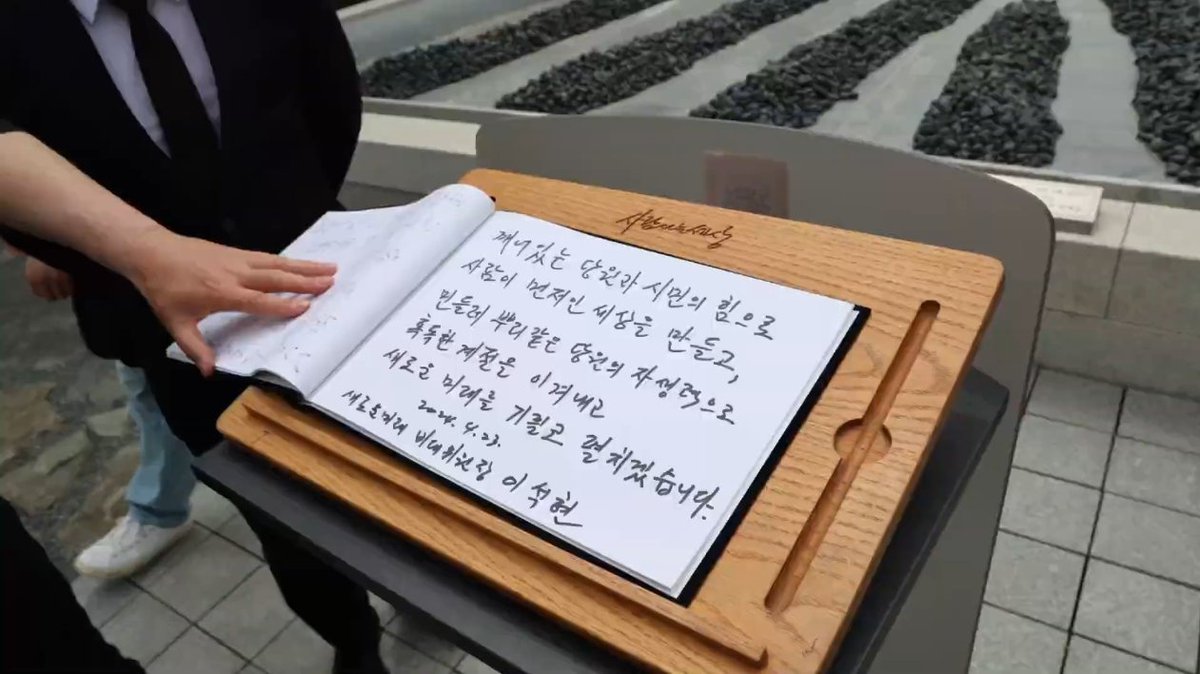 사람사는세상
깨어있는 당원과 시민의 힘으로
사람이 먼저인 세상을 만들고,
민들레 뿌리같은 당원의 자생력으로
혹독한 계절을 이겨내고
새로운 미래를 기필코 펼치겠습니다.
2024. 4. 23.
새로운미래 비대위원장 이석현